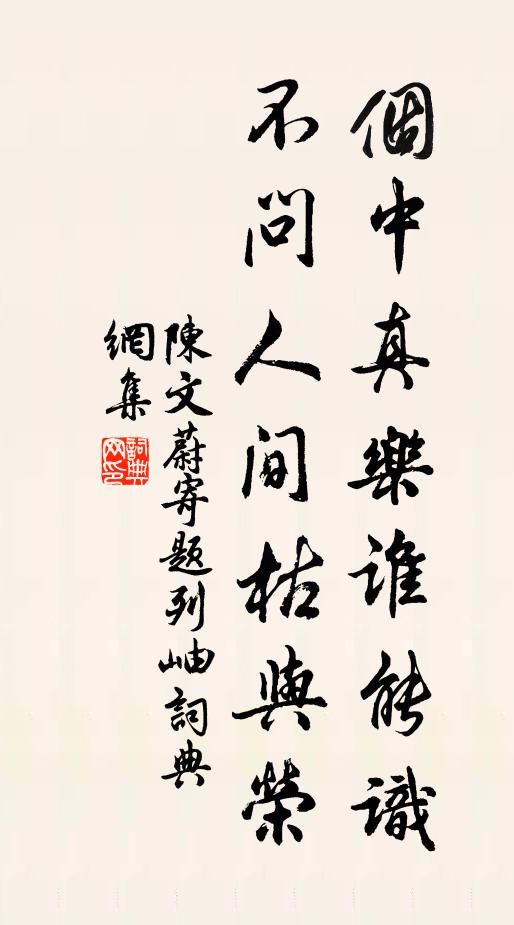 個中真樂誰能識
不問人間枯與榮
陳文蔚寄題列岫詞典
網集
詞典
网印